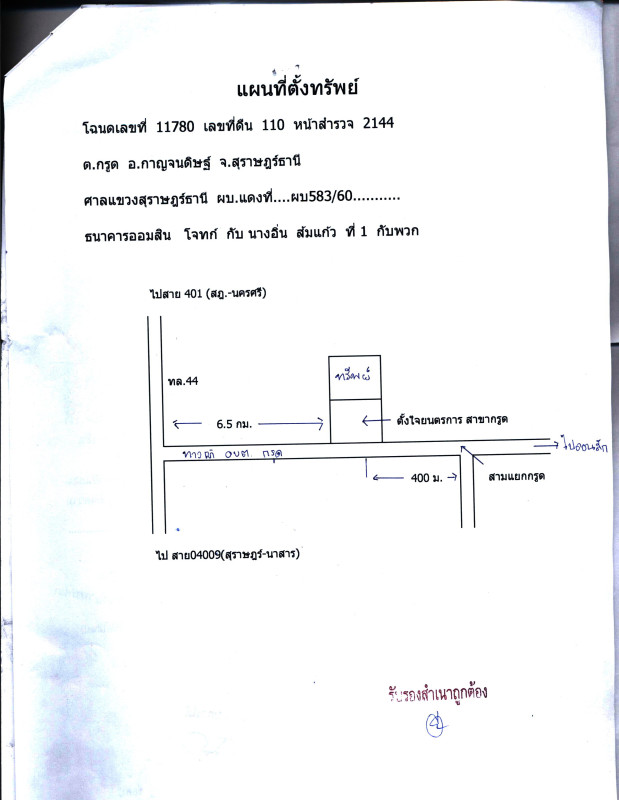 แผนที่ตั้งทรัพย์
โฉนดเลขที่ 11780 เลขที่ดิน 110 หน้าสำรวจ 2144
ต.กรูด อ.กาญจนดิษฐ์ จ.สุราษฎร์ธานี
ศาลแขวงสุราษฎร์ธานี ผบ.แดงที่....ผบ583/60...........
ธนาคารออมสิน โจทก์ กับ นางอิ่น ส้มแก้ว ที่ 1 กับพวก
ไปสาย 401 (สฎ.-นครศรี)
ทรัพย์
ทล.44
6.5 กม.
ตั้งใจยนตรการ สาขากรูด
อบต กรูด
400 ม.
สามแยกกรูด
ไป สาย04009(สุราษฎร์-นาสาร)
รับรองสำเนาถูกต้อง